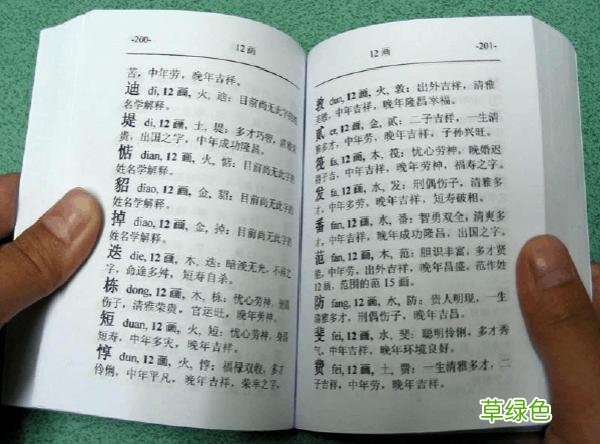 -200-
12画
苦,中年劳,晚年吉祥。
迪 di, 12画,火,迪:目前尚无此字的
名学解释。
堤 di, 12画,土,堤:多才巧智,清雅
贵,出国之字,中年成功隆昌。
惦 dian, 12画,火,惦:目前尚无此字的
姓名学解释。
貂 diao, 12画,金,貂:目前尚无此字的
姓名学解释。
掉 diao, 12画,金,掉:目前尚无此字的
姓名学解释。
迭 die, 12画,木,迭:暗淡无光,不祥之
字,命途多舛,短寿自杀。
栋 dong, 12画,木,栋:忧心劳神,身弱
伤子,清雅荣贵。官运旺,晚年劳神。
短 duan, 12画,火,短:忧心劳神,身弱
短寿,中年多灾,晚年吉祥。
惇 dun, 12画,火,惇:福禄双收,多才
伶俐,中年平凡,晚年吉祥,荣幸之字,
12画
-201-
敦 dun, 12画,火,敦:出外吉祥,清雅
,中年吉祥,晚年隆昌幸福。
贰 er, 12画,金,贰:二子吉祥,一生清
雅多才,中年劳,晚年吉祥,子孙兴旺。
筏 fa, 12画,木,筏:忧心劳神,晚婚迟
得子吉,中年吉祥,晚年劳神,福寿之字。
发 fa, 12画,水,发:刑偶伤子,清雅多
才,中年多劳,晚年吉祥,短寿破相。
番 fan, 12画,水,番:智勇双全,清爽多
才,中年吉祥,晚年成功隆昌,出国之字。
范 fan, 12画,木,范:胆识丰富,多才贤
能,中年劳,出外吉祥,晚年昌盛,范作姓
12画,范围的范15画。
防 fang, 12画,水,防:贵人明现,一生
清雅多才,刑偶伤子,晚年吉昌。
斐 fei, 12画,水,斐:聪明伶俐,多才秀
气,中年吉祥,晚年环境良好。
费 fei, 12画,土,费:一生清雅多才,二
子吉祥,中年劳,晚年吉祥。
草绿色